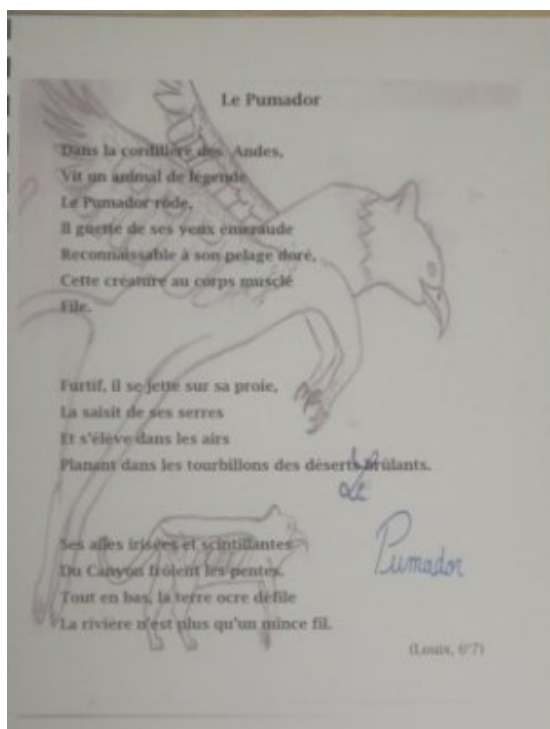 Le Pumador
Dans la cordillère des Andes,
Vit un animal de légende
Le Pumador rôde,
Il guette de ses yeux émeraude
Reconnaissable à son pelage doré,
Cette créature au corps musclé
File.
Furtif, il se jette sur sa proie,
La saisit de ses serres
Et s'élève dans les airs
Planant dans les tourbillons des déserts brûlants.
Le
Pumador
Ses ailes irisées et scintillantes
Du Canyon frôlent les pentes.
Tout en bas, la terre ocre défile
La rivière n'est plus qu'un mince fil.
(Louis, 6°7)